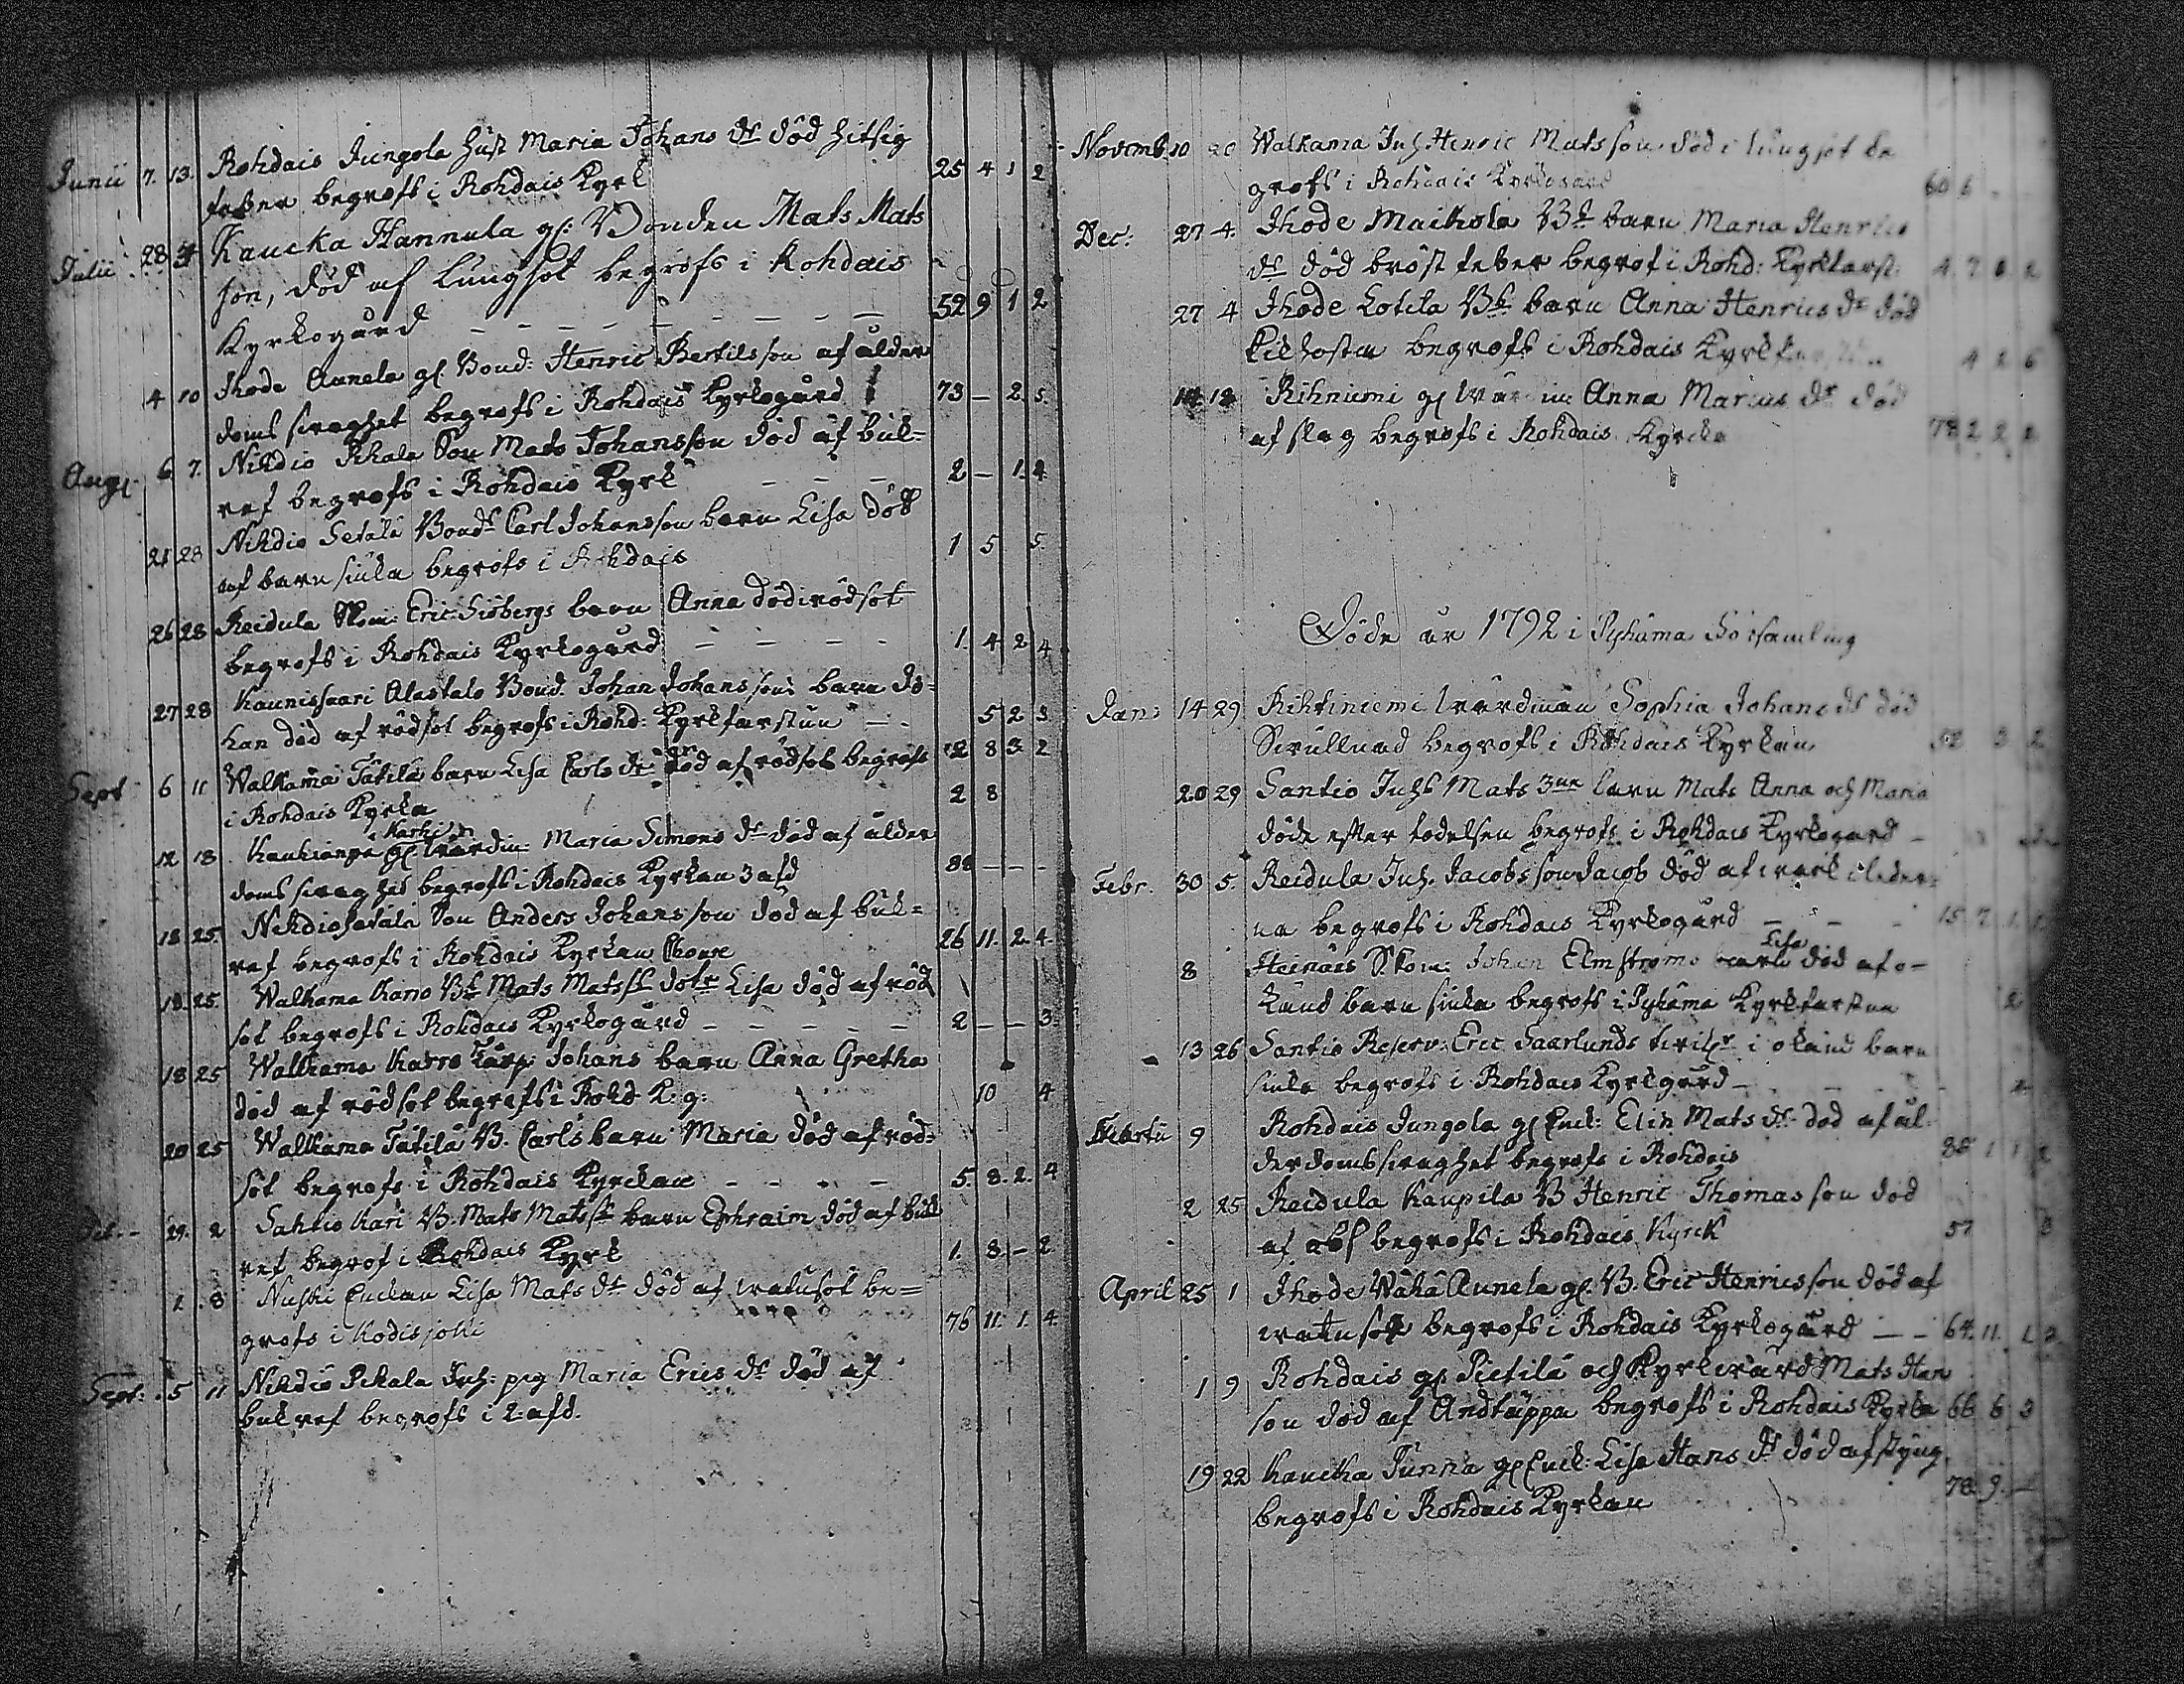 Junii 7. 13. Rohdais Jungola Hust Maria Johans dr död Hitsig
feber begrofs i Rohdais Kyrk 25 4 1 2
Julii 28 Kaucka Hannula gl: Bonden Mats Mats
son, död af Lungsot begrofs i Rohdais
Kyrkogård — — — — — — — — — — 52 9 1 2
4 10 Ihode Annela gl. Bond: Henric Bertilsson af ålder
doms swaghet begrofs i Rohdais Kyrkogård 73 — 2. 5.
Aug. 6 7. Nihdio Pikala Son Mats Johansson död af buk-
ref begrofs i Rohdais Kyrk — — — 2 — 1. 4
21 28 Nihdio Setälä Bonds Carl Johansson barn Lisa död
af barnsiuka begrofs i Rohdais 1 5 5.
26 28 Reidula Skom: Eric Siöbergs barn Anna död i rödsot
begrofs i Rohdais Kyrkogård — — — — 1. 4 2 4
27 28 Kaunissaari Alastalo Bond. Johan Johanssons barn Jo-
han död af rödsot begrofs i Rohd: Kyrkfarstun — . 5 2 3
Sept 6 11 Walkama Tätilä barn Lisa Carls dr död af rödsot begrofs 12 8 3 2
i Rohdais Kyrka 2 8
Karhi
12 18 Kauhianpä gl. Wärdin: Maria Simons dr död af ålder
doms swaghet begrofs i Rohdais Kyrkan 3 afd 88 — — —
18 25. Nihdio Setälä Son Anders Johansson död af buk-
ref begrofs i Rohdais Kyrkan 26 11. 2. 4.
18. 25. Walkama Karro Bd Mats Matss dotr Lisa död af röd
sot begrofs i Rohdais Kyrkogård — — — — — 2 — — 3
18 25 Walkama Karro Johans barn Anna Gretha
död af rödsot begrofs i Rohd K: g: 10 4
20 25 Walkama Tätilä B. Carls barn Maria död af röd-
sot begrofs i Rohdais Kyrckan — — — — 5. 8. 2. 4
29. 2 Sahtio Kari B. Mats Matss barn Ephraim död af buk
ref begrof i Rohdais Kyrk 1. 8. — 2
1. 8 Nuhki Enckan Lisa Mats dr död af watusot be=
grofs i Kodisjoki 76 11. 1. 4
Sept: 5 11 Nihdiö Pikala Inh: pig Maria Erics dr död af
bukref begrofs i 2: afd.
Novemb. 10 20 Walkama Inh Henric Matsson död i lungsot be
grofs i Rohdais Kyrkogård 60 6 —
Dec: 27 4. Ihode Maihola Bd barn Maria Henrics
dr död bröst feber begrof i Rohd: Kyrkfarst: 4 7 2
27 4 Ihode Kotila Bd barn Anna Henrics dr död
Kikhosta begrofs i Rohdais 4 2 6
14 18 Rihniemi gl Anna Marcus dr död
af slag begrofs i Rohdais Kyrcka 78 2 2 2
Döde år 1792 i Pyhäma Församling
Jan: 14 29 Rihtiniemi Sophia Johans dr död
begrofs i Rohdais Kyrkan 52 3 2
20 29 Santio Inhs Mats 3ne barn Mats Anna och Maria
döde efter födelsen begrofs i Rohdais Kyrkogård —
Febr. 30 5. Reidula Inh. Jacobsson Jacob död af wärk i leder=
na begrofs i Rohdais Kyrkogård — — — 15 7 1.
Lisa
8 Heinäis Skom: Johan Elmströms barn död af o-
känd barn siuka begrofs i Pyhäma Kyrkfarstun 2
— 13 26 Santio Reserv: Eric Saarlunds i okänd barn
siuka begrofs i Rohdais Kyrkgård — 4
Martii 9 Rohdais Jungola gl Enck: Elin Mats dr död af ål-
derdoms swaghet begrofs i Rohdais 88 1 1 2
2 25 Reidula Kaupila B Henric Thomasson död
af begrofs i Rohdais Kyrck 57 3
April 25 1 Ihode Wähä Annela gl. B. Eric Henricsson död af
watusot begrofs i Rohdais Kyrkogård — — 64. 11. 1. 2
1 9 Rohdais gl Pietilä och Kyrkiwärd Mats Han
son död af Andtäppa begrofs i Rohdais Kyrka 66 6 3
19 22 Kaucka Junna gl Enck: Lisa Hans dr död af styng
begrofs i Rohdais Kyrkan 78. 9. —